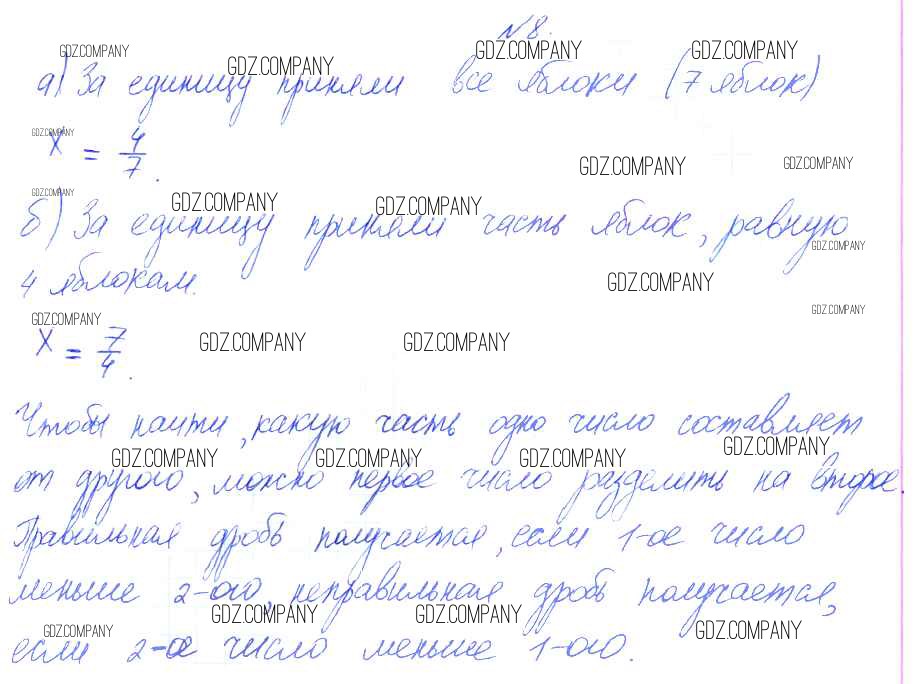 №8.
GDZ.COMPANY GDZ.COMPANY GDZ.COMPANY GDZ.COMPANY
а) За единицу приняли все яблоки (7 яблок)
GDZ.COMPANY
x = 4/7.
GDZ.COMPANY GDZ.COMPANY
GDZ.COMPANY GDZ.COMPANY GDZ.COMPANY
б) За единицу приняли часть яблок, равную
GDZ.COMPANY
4 яблокам.
GDZ.COMPANY
GDZ.COMPANY GDZ.COMPANY
x = 7/4.
GDZ.COMPANY GDZ.COMPANY
Чтобы найти, какую часть одно число составляет
GDZ.COMPANY GDZ.COMPANY GDZ.COMPANY GDZ.COMPANY
от другого, можно первое число разделить на второе.
Правильная дробь получается, если 1-ое число
меньше 2-ого, неправильная дробь получается,
GDZ.COMPANY GDZ.COMPANY GDZ.COMPANY GDZ.COMPANY
если 2-ое число меньше 1-ого.